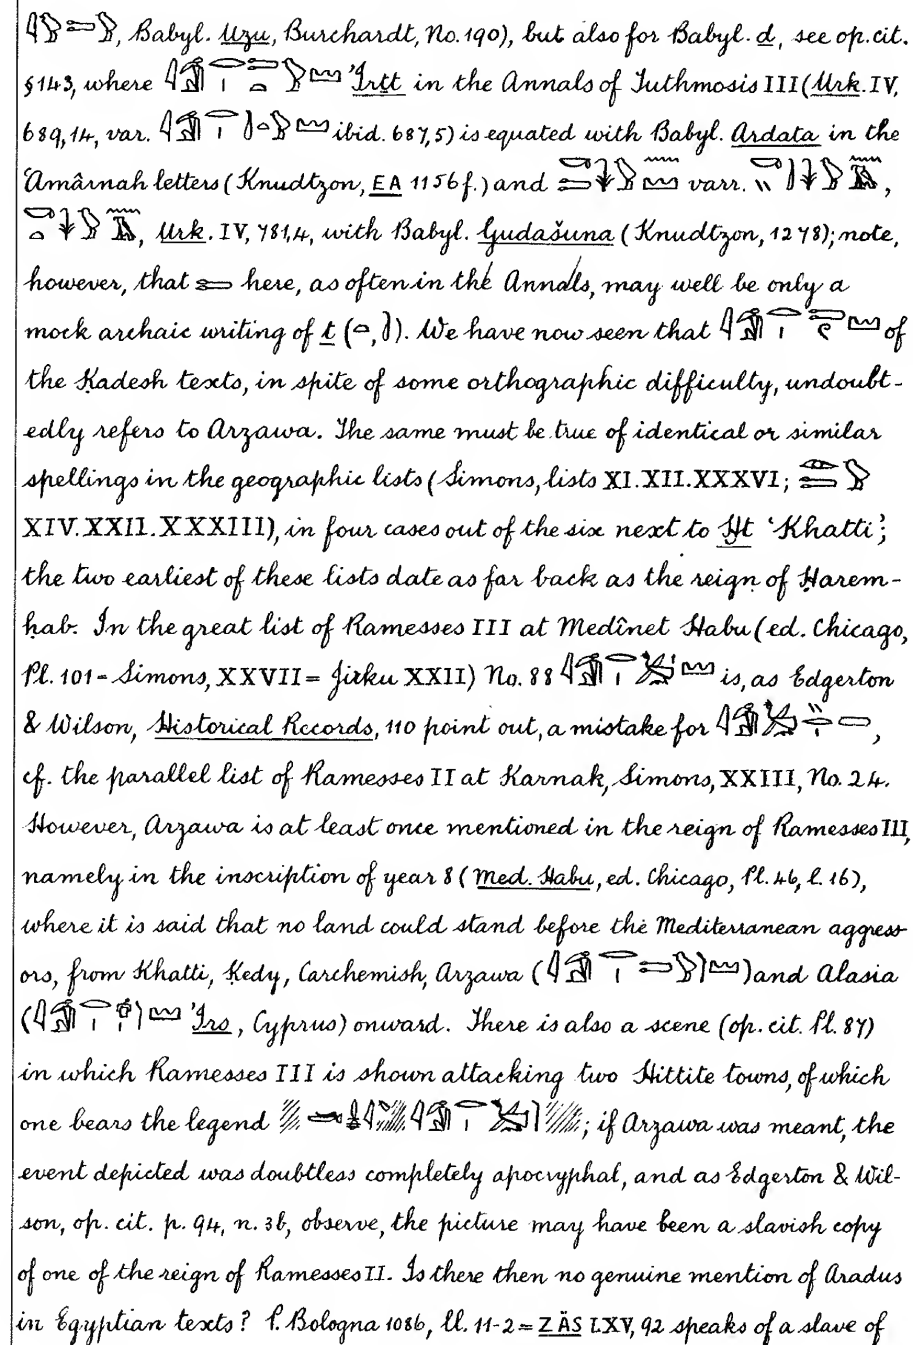 , Babyl. Uzu, Burchardt, No. 190), but also for Babyl. d, see op. cit.
§143, where ꞽrṯt in the Annals of Tuthmosis III (Urk. IV,
689,14, var. ibid. 687,5) is equated with Babyl. Ardata in the
ʿAmârnah letters (Knudtzon, EA 1156 f.) and varr. ,
, Urk. IV, 781,4, with Babyl. Gudašuna (Knudtzon, 1278); note,
however, that here, as often in the Annals, may well be only a
mock archaic writing of t ( , ). We have now seen that of
the Ḳadesh texts, in spite of some orthographic difficulty, undoubt-
edly refers to Arzawa. The same must be true of identical or similar
spellings in the geographic lists (Simons, lists XI. XII. XXXVI;
XIV. XXII. XXXIII), in four cases out of the six next to Ḫt 'Khatti';
the two earliest of these lists date as far back as the reign of Ḥarem-
ḥab. In the great list of Ramesses III at Medînet Habu (ed. Chicago,
Pl. 101 = Simons, XXVII = Jirku XXII) No. 88 is, as Edgerton
& Wilson, Historical Records, 110 point out, a mistake for ,
cf. the parallel list of Ramesses II at Karnak, Simons, XXIII, No. 24.
However, Arzawa is at least once mentioned in the reign of Ramesses III,
namely in the inscription of year 8 (Med. Habu, ed. Chicago, Pl. 46, l. 16),
where it is said that no land could stand before the Mediterranean aggress-
ors, from Khatti, Ḳedy, Carchemish, Arzawa ( ) and Alasia
( ꞽrs, Cyprus) onward. There is also a scene (op. cit. Pl. 87)
in which Ramesses III is shown attacking two Hittite towns, of which
one bears the legend ; if Arzawa was meant, the
event depicted was doubtless completely apocryphal, and as Edgerton & Wil-
son, op. cit. p. 94, n. 3b, observe, the picture may have been a slavish copy
of one of the reign of Ramesses II. Is there then no genuine mention of Aradus
in Egyptian texts? P. Bologna 1086, ll. 11-2 = ZÄS LXV, 92 speaks of a slave of